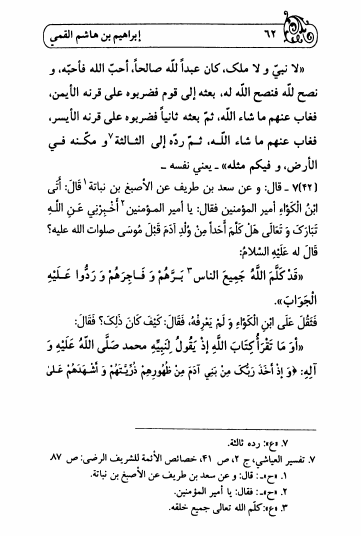 ٦٢ إبراهيم بن هاشم القمي
«لا نبيّ و لا ملك، كان عبداً للّه صالحاً، أحبّ الله فأحبّه، و
نصح للّه فنصح اللّه له، بعثه إلى قوم فضربوه على قرنه الأيمن،
فغاب عنهم ما شاء اللّه، ثمّ بعثه ثانياً فضربوه على قرنه الأيسر،
فغاب عنهم ما شاء اللّه، ثمّ ردّه إلى الثالثة٧ و مكّنه في
الأرض، و فيكم مثله» ـ يعني نفسه ـ
[٤٢]٧ ـ قال: و عن سعد بن طريف عن الأصبغ بن نباتة١ قَالَ: أَتَى
ابْنُ الْكَوَّاءِ أمير المؤمنين فقال: يا أمير المؤمنين٢ أَخْبِرْنِي عَنِ اللَّهِ
تَبَارَكَ وَ تَعَالَى هَلْ كَلَّمَ أَحَداً مِنْ وُلْدِ آدَمَ قَبْلَ مُوسَى صلوات الله عليه؟
قَالَ له عَلَيْهِ السَّلامُ:
«قَدْ كَلَّمَ اللَّهُ جَمِيعَ الناس٣ بَرَّهُمْ وَ فَاجِرَهُمْ وَ رَدُّوا عَلَيْهِ
الْجَوَابَ».
فَثَقُلَ عَلَى ابْنِ الْكَوَّاءِ وَ لَمْ يَعْرِفْهُ، فَقَالَ: كَيْفَ كَانَ ذَلِكَ؟ فَقَالَ:
«أَوَ مَا تَقْرَأُ كِتَابَ اللَّهِ إِذْ يَقُولُ لِنَبِيِّهِ محمد صَلَّى اللَّهُ عَلَيْهِ وَ
آلِهِ: ﴿وَ إِذْ أَخَذَ رَبُّكَ مِنْ بَنِي آدَمَ مِنْ ظُهُورِهِمْ ذُرِّيَّتَهُمْ وَ أَشْهَدَهُمْ عَلى
٧. «ع»: رده ثالثة.
٧. تفسير العياشي، ج ٢، ص ٤١، خصائص الأئمة للشريف الرضي: ص ٨٧.
١. «ح»ـ: قال: و عن سعد بن طريف عن الأصبغ بن نباتة.
٢. «ح»ـ: فقال: يا أمير المؤمنين.
٣. «ع»: كلّم الله تعالى جميع خلقه.